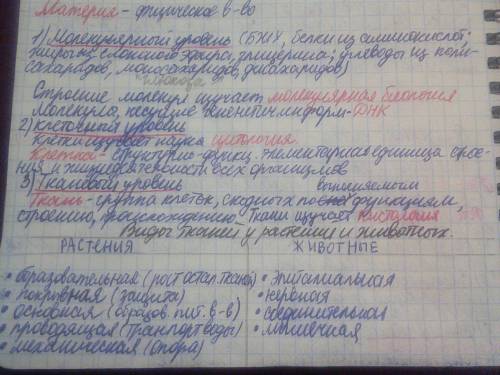 Материя - физическое в-во
1) Молекулярный уровень (БЖУ, белки из аминокислот,
жиры из сложного эфира, глицерина; углеводы из поли-
сахаридов, моносахаридов, дисахаридов)
Строение молекул изучает молекулярная биология
Молекула, несущие генетич. информ-ДНК
2) Клеточный уровень
Клетки изучает наука цитология.
Клетка - структурно-функц. элементарная единица строе-
ния и жизнедеятельности всех организмов
3) Тканевой уровень
выполняемым
Ткань - группа клеток, сходных по функциям,
строению, происхождению. Ткани изучает гистология
Виды тканей у растений и животных.
РАСТЕНИЯ ЖИВОТНЫЕ
• образовательная (рост остал. тканей) • Эпителиальная
• покровная (защита) • нервная
• основная (образов. пит. в-в) • соединительная
• проводящая (транспорт воды) • мышечная
• механическая (опора)